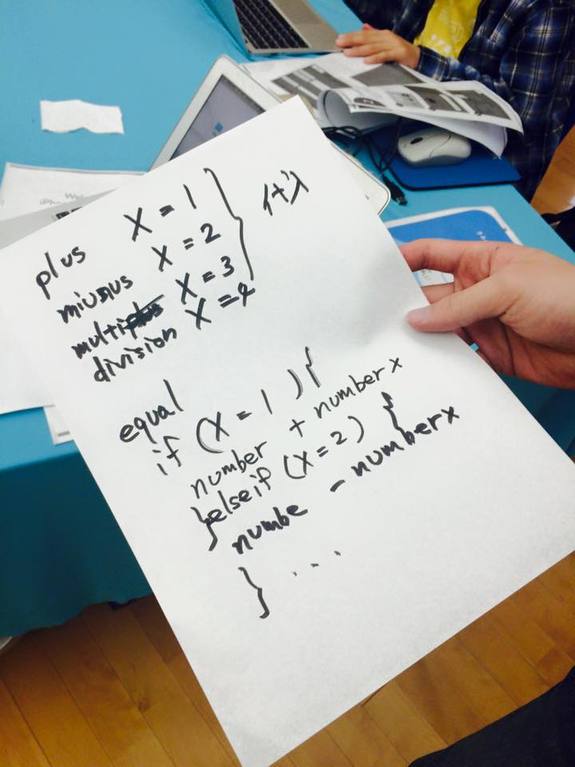 plus X = 1
miusus X = 2
multi X = 3
division X = 4
代入
equal
if (X = 1) {
number + number x
}elseif (X=2) {
numbe - numberx
} ...